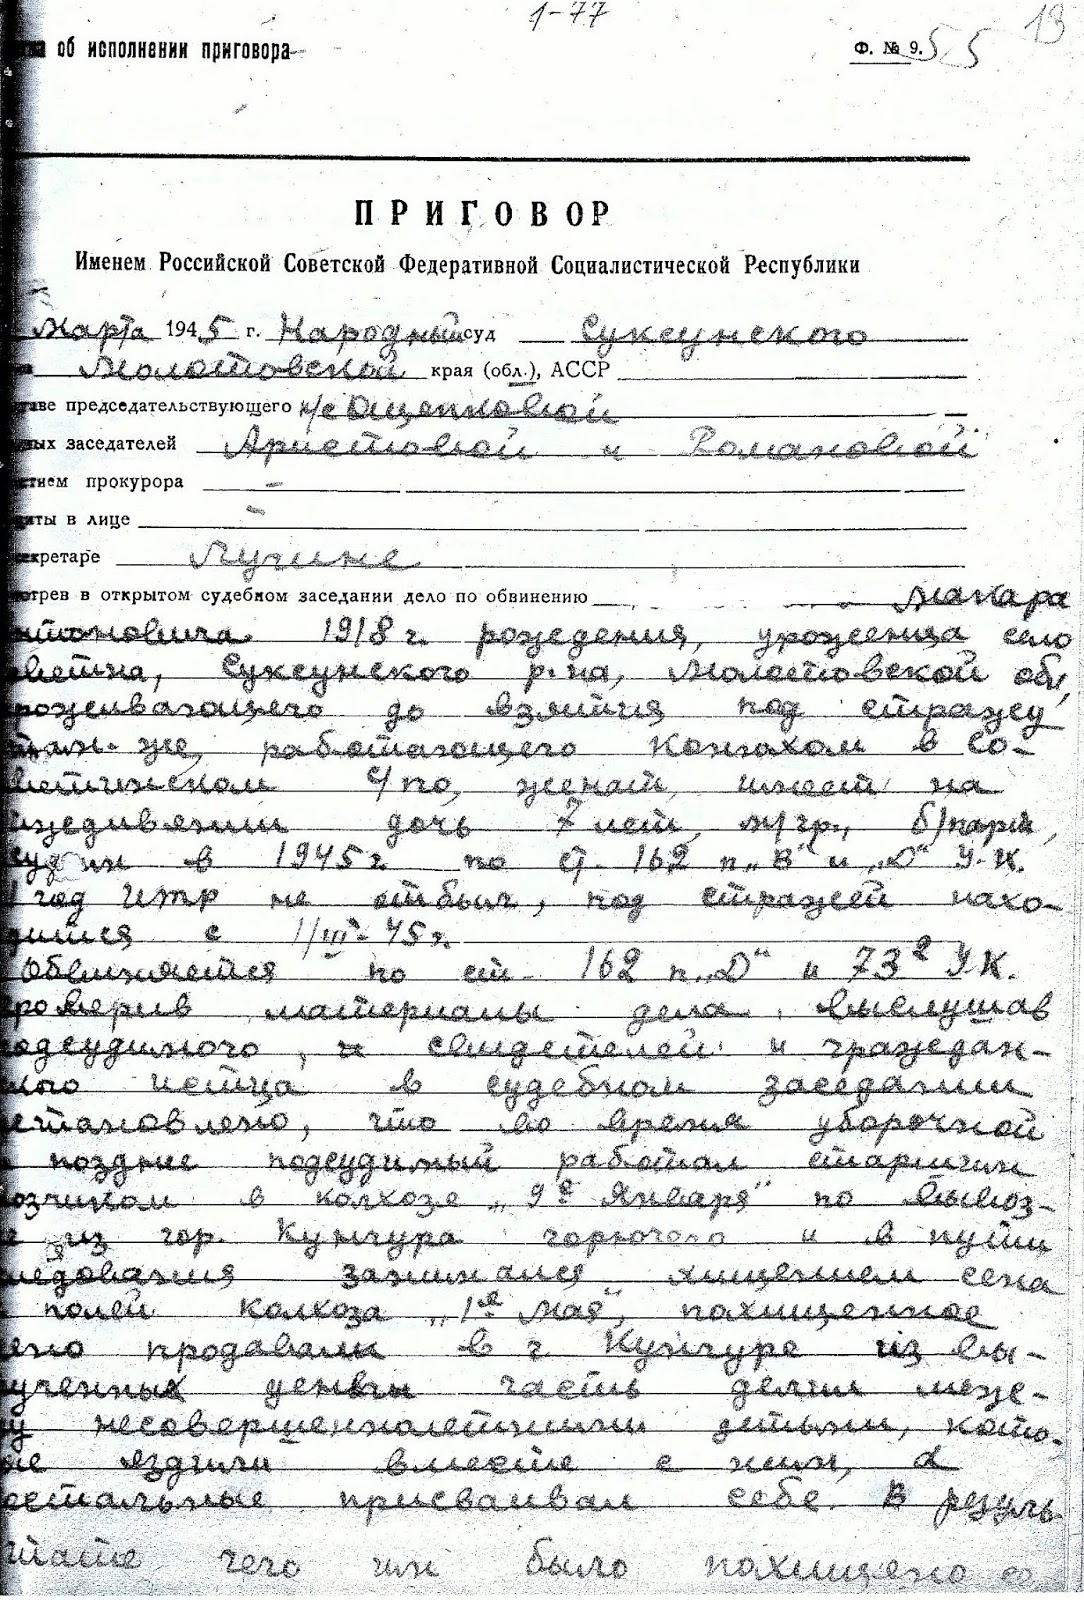 1-77
13
об исполнении приговора
Ф. № 9.
55
ПРИГОВОР
Именем Российской Советской Федеративной Социалистической Республики
Марта 1945 г. Народный суд Суксунского
Молотовской края (обл.), АССР
таве председательствующего н/с Ощепковой
ных заседателей Аристовой и Романовой
стием прокурора –
щиты в лице –
секретаре Лучине
отрев в открытом судебном заседании дело по обвинению Макара
нтоновича 1918 г. рождения, уроженца село
ветна, Суксунского р-на, Молотовской обл,
роживающего до взятия под стражу
там-же, работающего конюхом в Со-
ветинском с/по, женат, имеет на
ижедивении дочь 7 лет, м/гр., б/парт,
суд ин в 1945 г. по ст. 162 п „В" и „D" У.К.
1 год ИТР не отбыл, под стражей нахо-
дится с 1/III-45 г.
Обвиняется по ст- 162 п „D" и 73² У.К.
роверив материалы дела, выслушав
одсудимого, и свидетелей и граждан-
кого истца в судебном заседании
становлено, что во время уборочной
позднее подсудимый работал старшим
озчиком в колхозе „9е Января" по вывоз-
из гор. Кунгура горючего и в пути
ледования занимался хищением сена
полей колхоза „1е Мая", похищенное
ено продавали в г. Кунгуре из вы-
ученных деньги часть делил меж-
у несовершеннолетними детьми, кото-
ые ездили вместе с ним, а
остальные присваивал себе. В резуль-
тате чего им было похищено